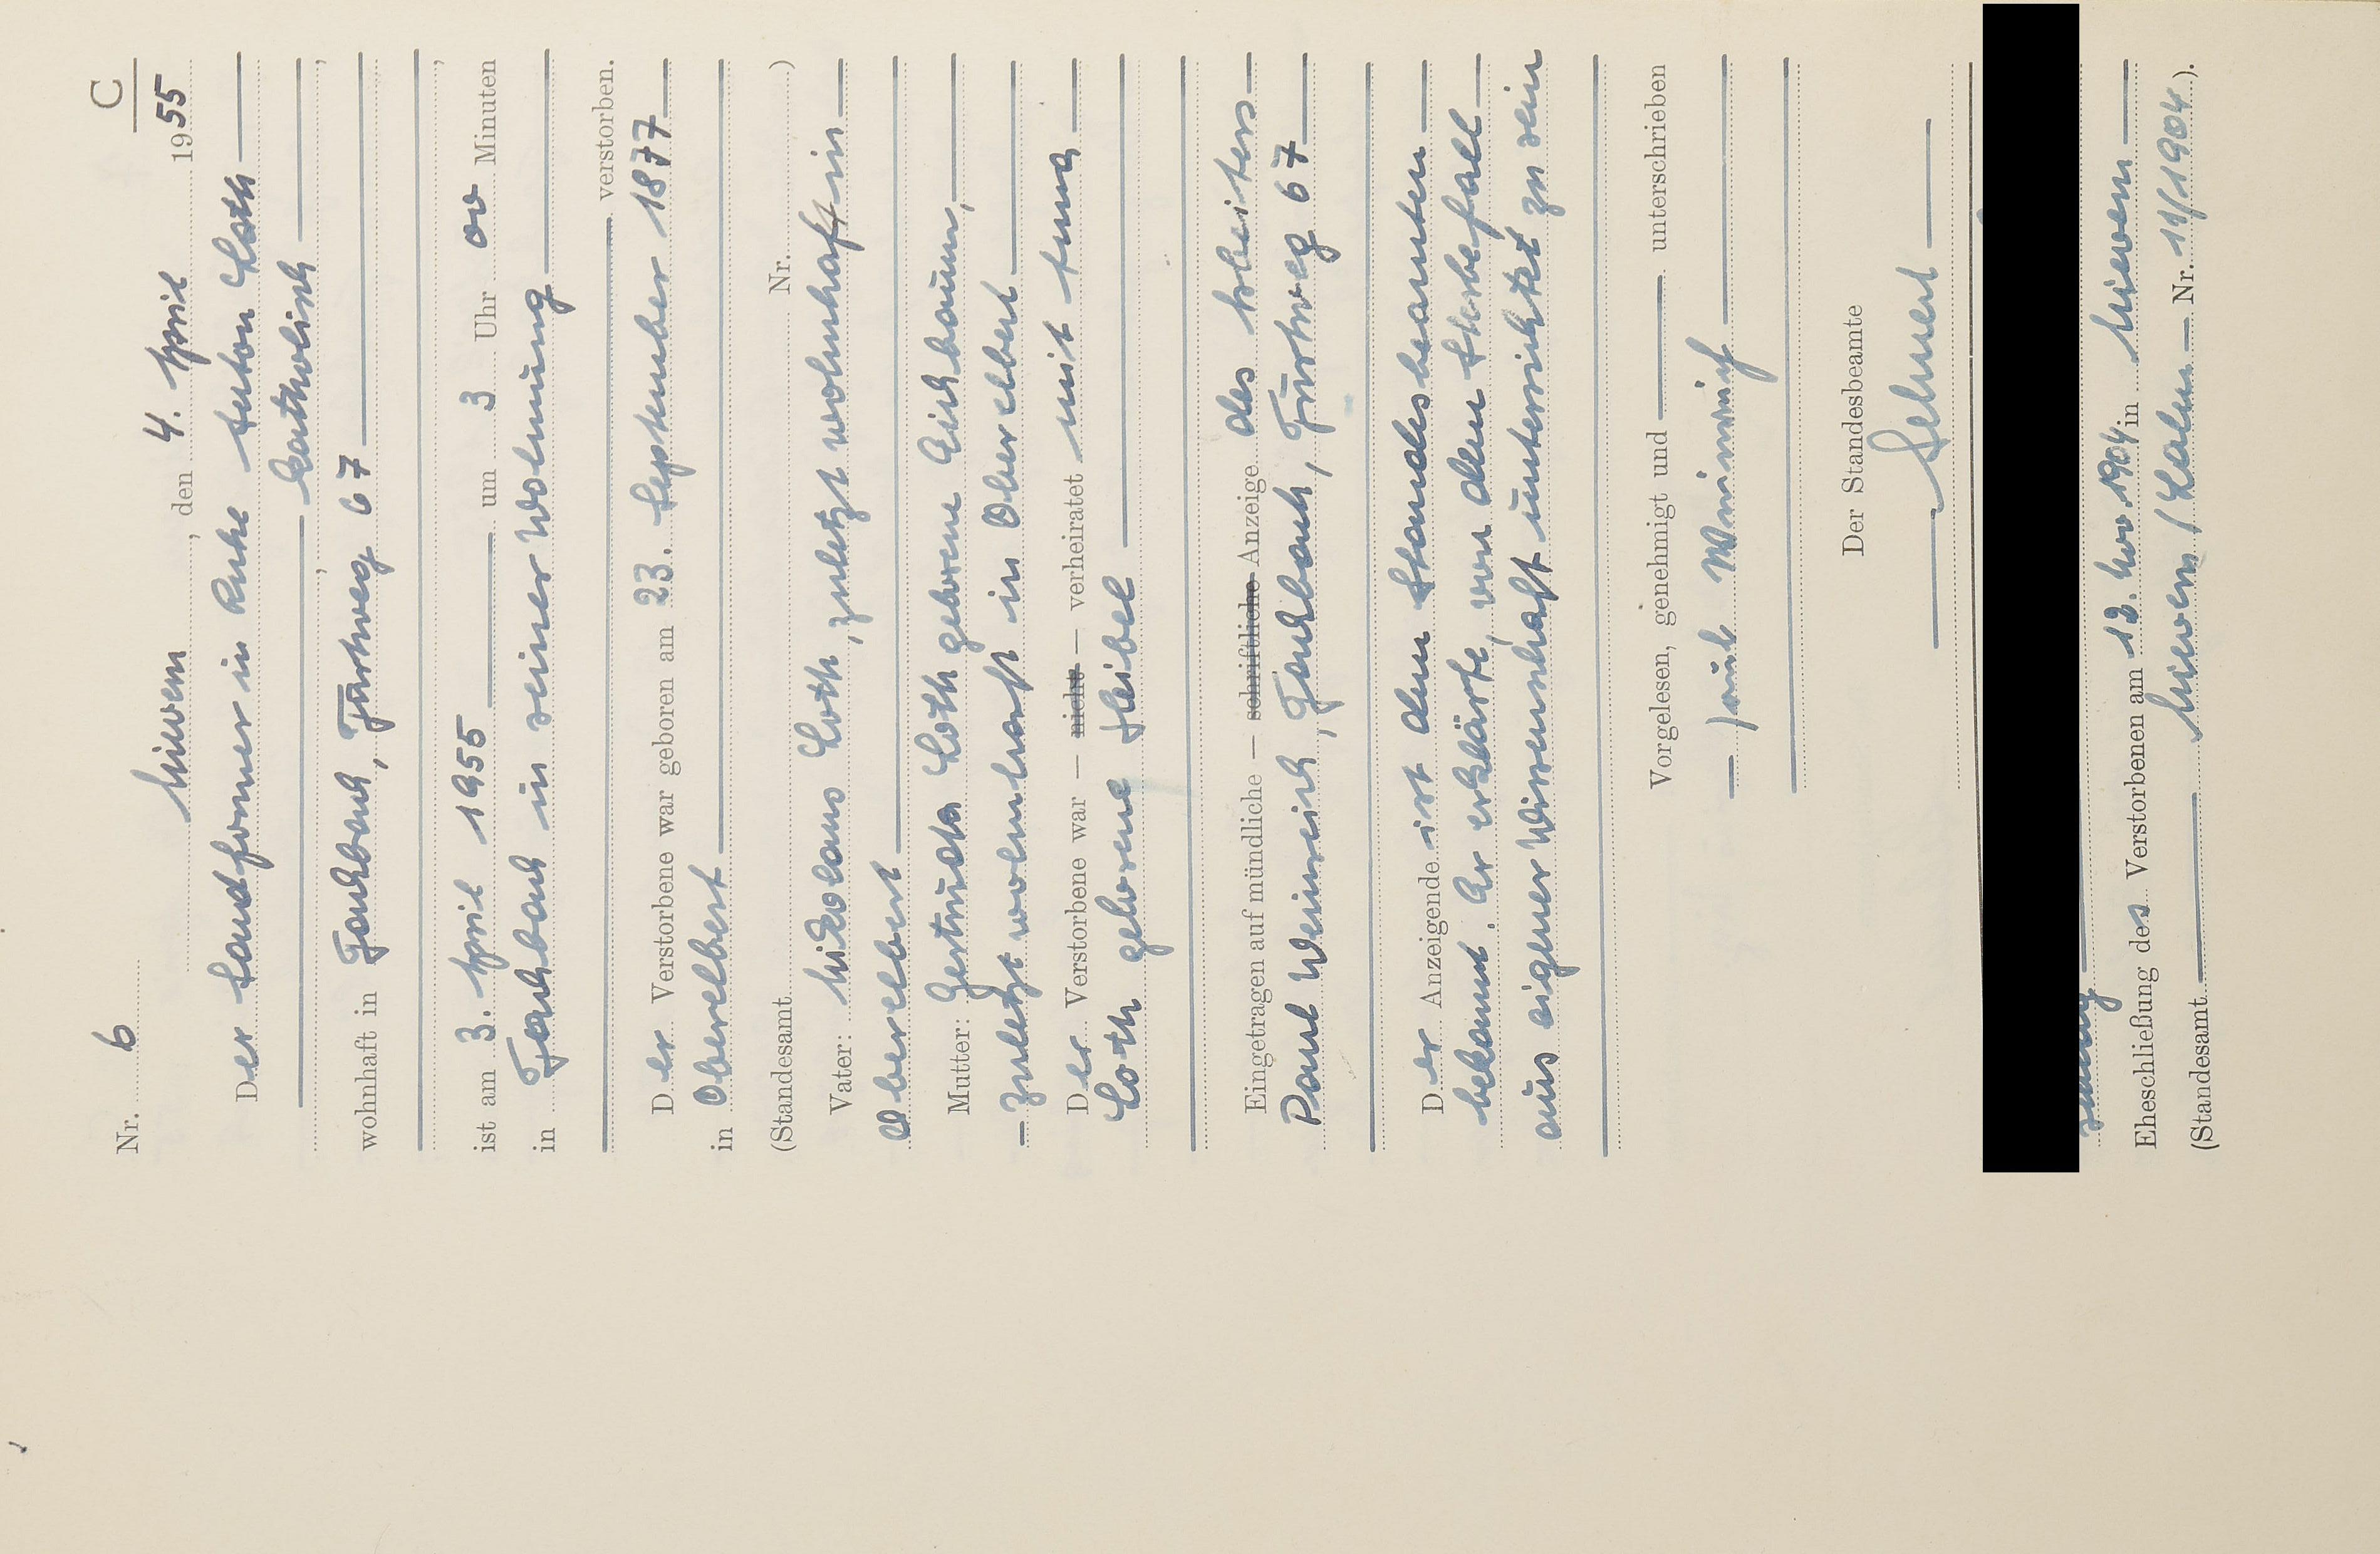 Nr. 6
C
Nievern, den 4. April 1955
Der Sandformer in Ruhe Anton Loth
katholisch
wohnhaft in Fachbach, Fürstweg 67
ist am 3. April 1955 um 3 Uhr 00 Minuten
in Fachbach in seiner Wohnung
verstorben.
Der Verstorbene war geboren am 23. September 1877
in Oberelbert
(Standesamt Nr. )
Vater: Nikolaus Loth, zuletzt wohnhaft in
Oberelbert
Mutter: Gertruda Loth geborene Eichbaum,
zuletzt wohnhaft in Oberelbert
Der Verstorbene war — nicht — verheiratet mit Anna
Loth geborene Heibel
Eingetragen auf mündliche — schriftliche Anzeige des Arbeiters
Paul Weinreich, Fachbach, Fürstweg 67
Der Anzeigende ist dem Standesbeamten
bekannt. Er erklärte, von dem Sterbefall
aus eigener Wissenschaft unterrichtet zu sein
Vorgelesen, genehmigt und unterschrieben
Paul Weinreich
Der Standesbeamte
Eheschließung des Verstorbenen am 12. Nov. 1904 in Nievern
(Standesamt Nievern/Lahn — Nr. 11/1904).